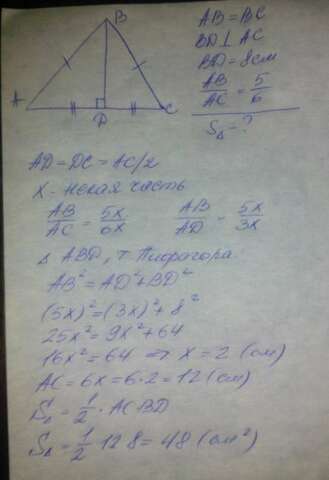 B
A
D
C
AB = BC
BD ⊥ AC
BD = 8 см
AB/AC = 5/6
S△ = ?
AD = DC = AC/2
X - некая часть
AB/AC = 5x/6x AB/AD = 5x/3x
△ ABD, т. Пифагора.
AB² = AD² + BD²
(5x)² = (3x)² + 8²
25x² = 9x² + 64
16x² = 64 ⇒ x = 2 (см)
AC = 6x = 6·2 = 12 (см)
S△ = 1/2 · AC·BD
S△ = 1/2 · 12·8 = 48 (см²)